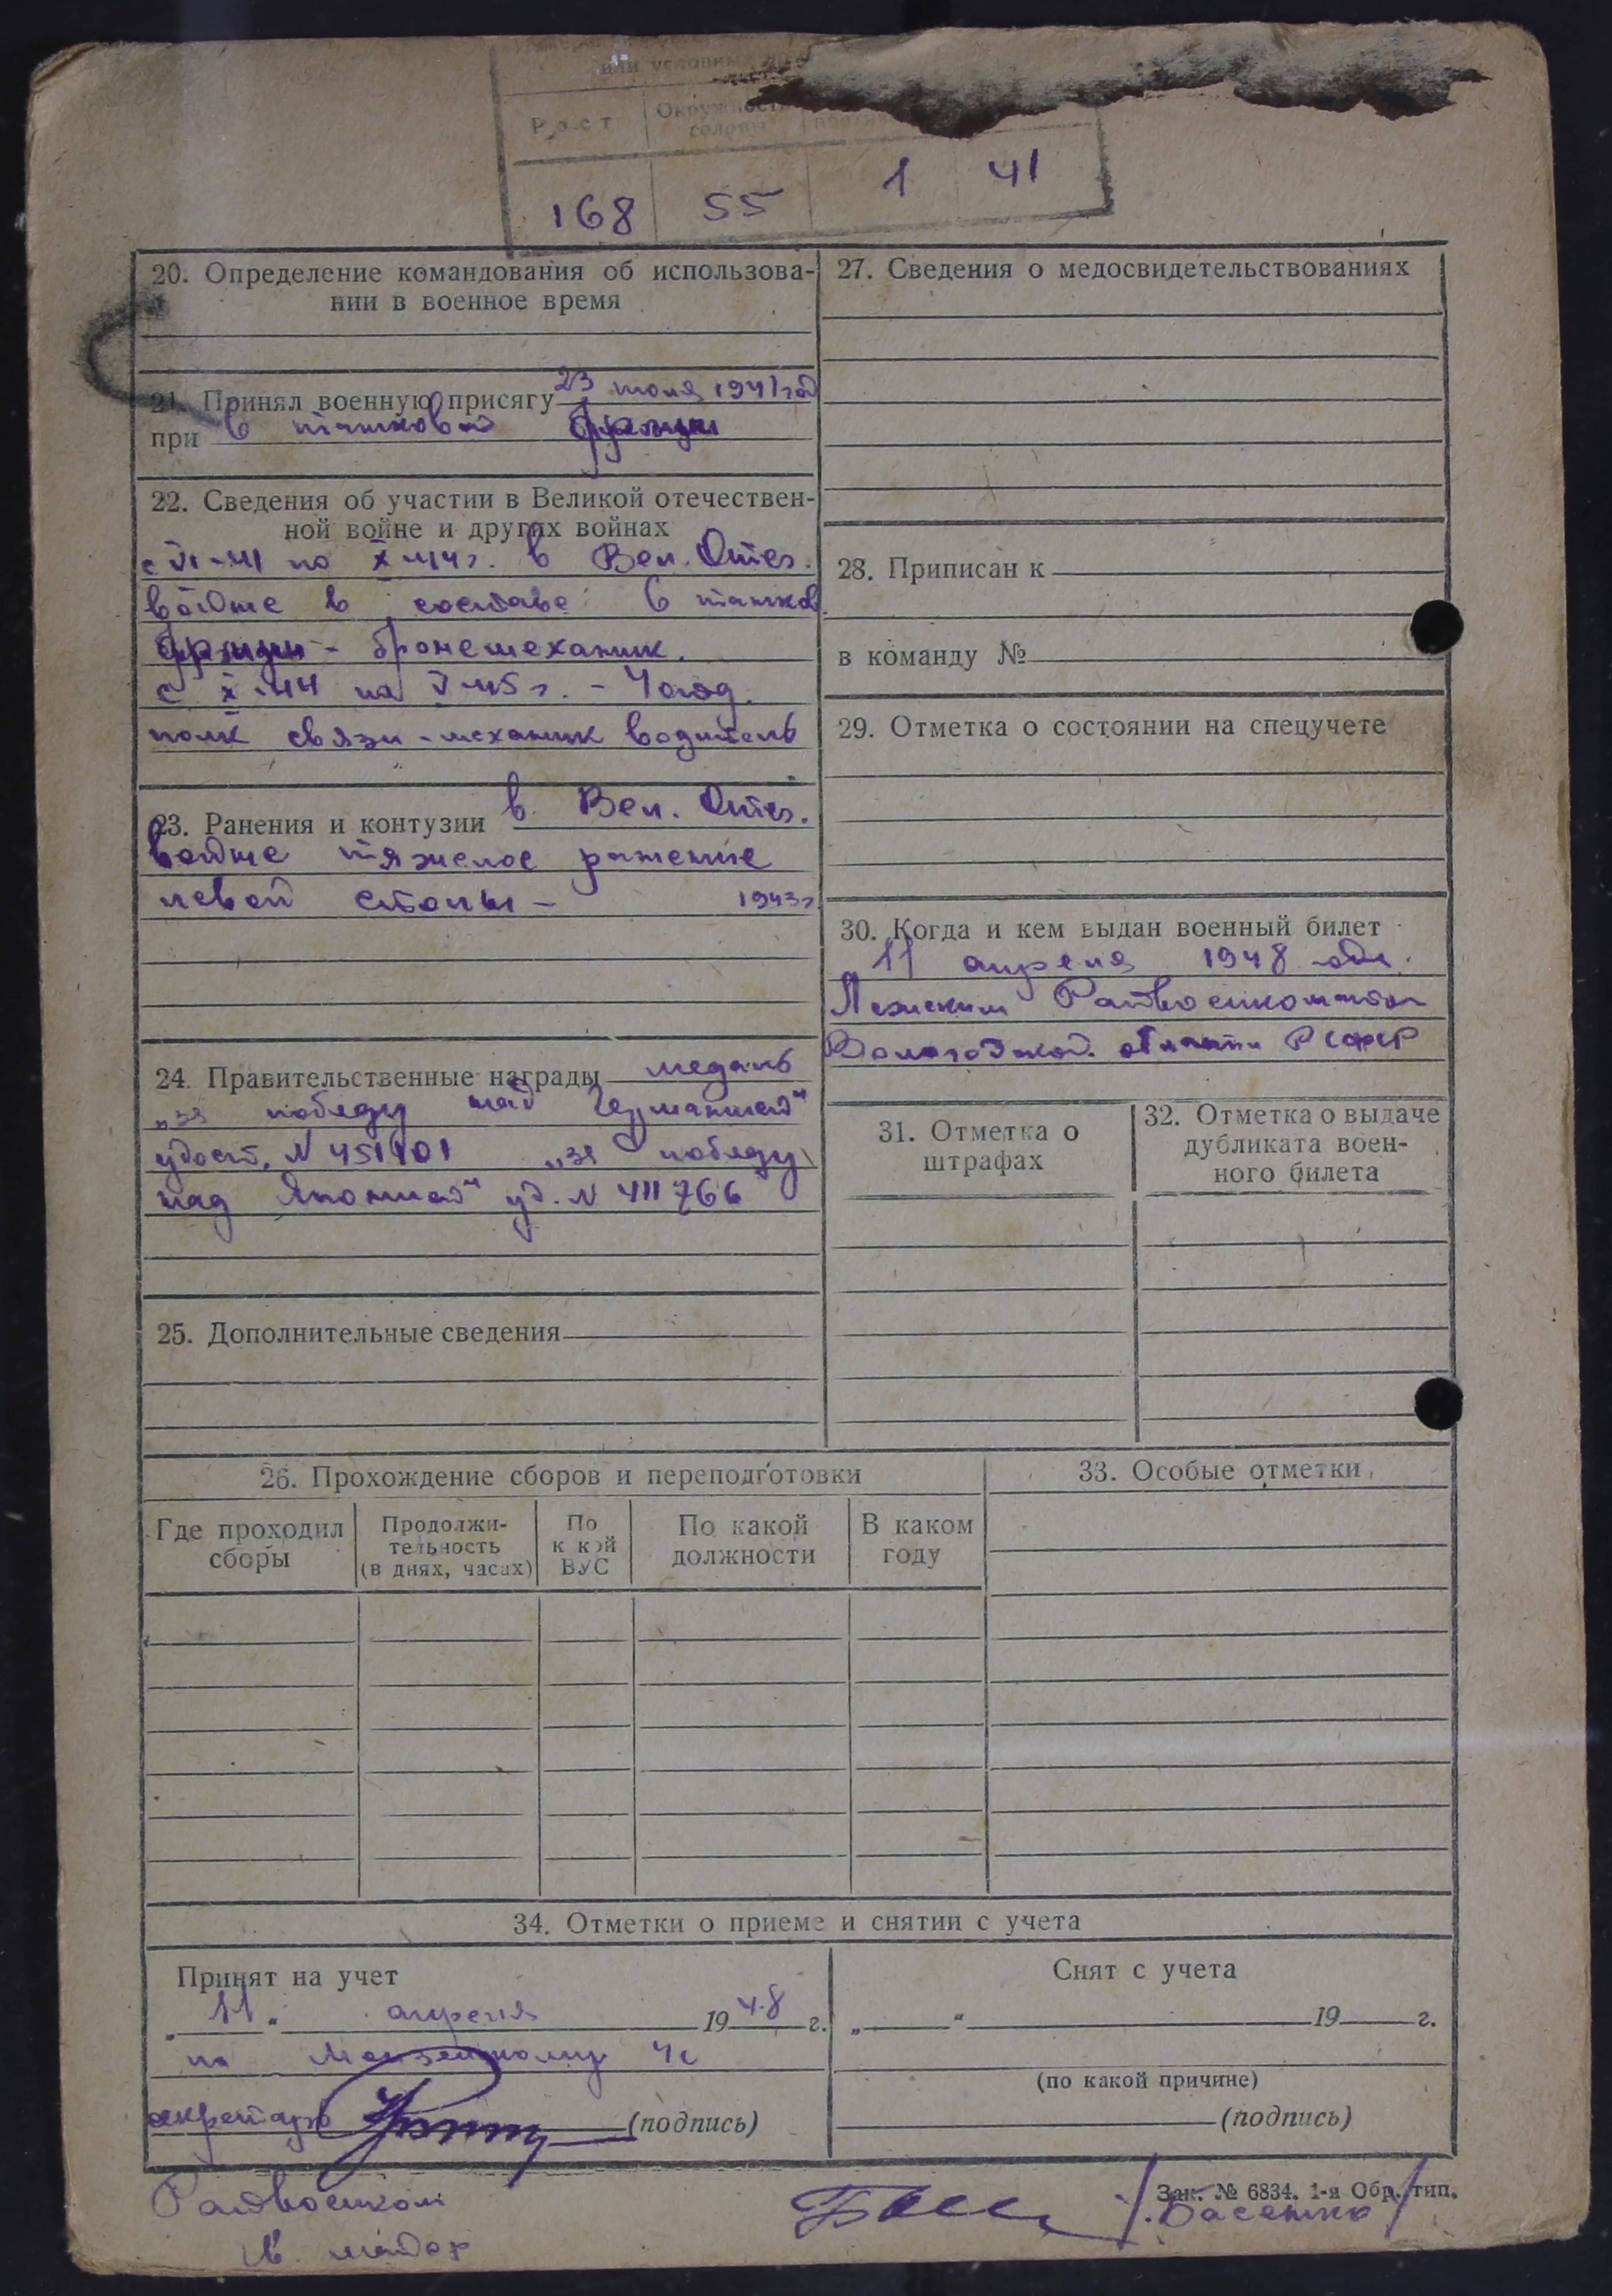 или условный
Рост
Окружность
головы
168 55 1 41
20. Определение командования об использова-
нии в военное время
21. Принял военную присягу 23 июля 1941 год
при в танковой бригаде
22. Сведения об участии в Великой отечествен-
ной войне и других войнах
с VI-41 по X-44 г. в Вел. Отеч.
войне в составе 6 танков.
бригады - бронемеханик.
с X-44 по V-45 г. -
полк связи - механик водитель
23. Ранения и контузии в Вел. Отеч.
войне тяжелое ранение
левой стопы - 1943 г.
24. Правительственные награды медаль
„за победу над Германией"
удост. N 451101 „за победу
над Японией" уд. N 411766
25. Дополнительные сведения
26. Прохождение сборов и переподготовки
Где проходил
сборы
Продолжи-
тельность
(в днях, часах)
По
к кой
ВУС
По какой
должности
В каком
году
27. Сведения о медосвидетельствованиях
28. Приписан к
в команду №
29. Отметка о состоянии на спецучете
30. Когда и кем выдан военный билет
11 апреля 1948
Лежским Райвоенкоматом
Вологодской области РСФСР
31. Отметка о
штрафах
32. Отметка о выдаче
дубликата воен-
ного билета
33. Особые отметки
34. Отметки о приеме и снятии с учета
Принят на учет
„11" апреля 1948 г.
по
(подпись)
Снят с учета
„ " 19 г.
(по какой причине)
(подпись)
Зак. № 6834. 1-я Обр. тип.
Райвоенком